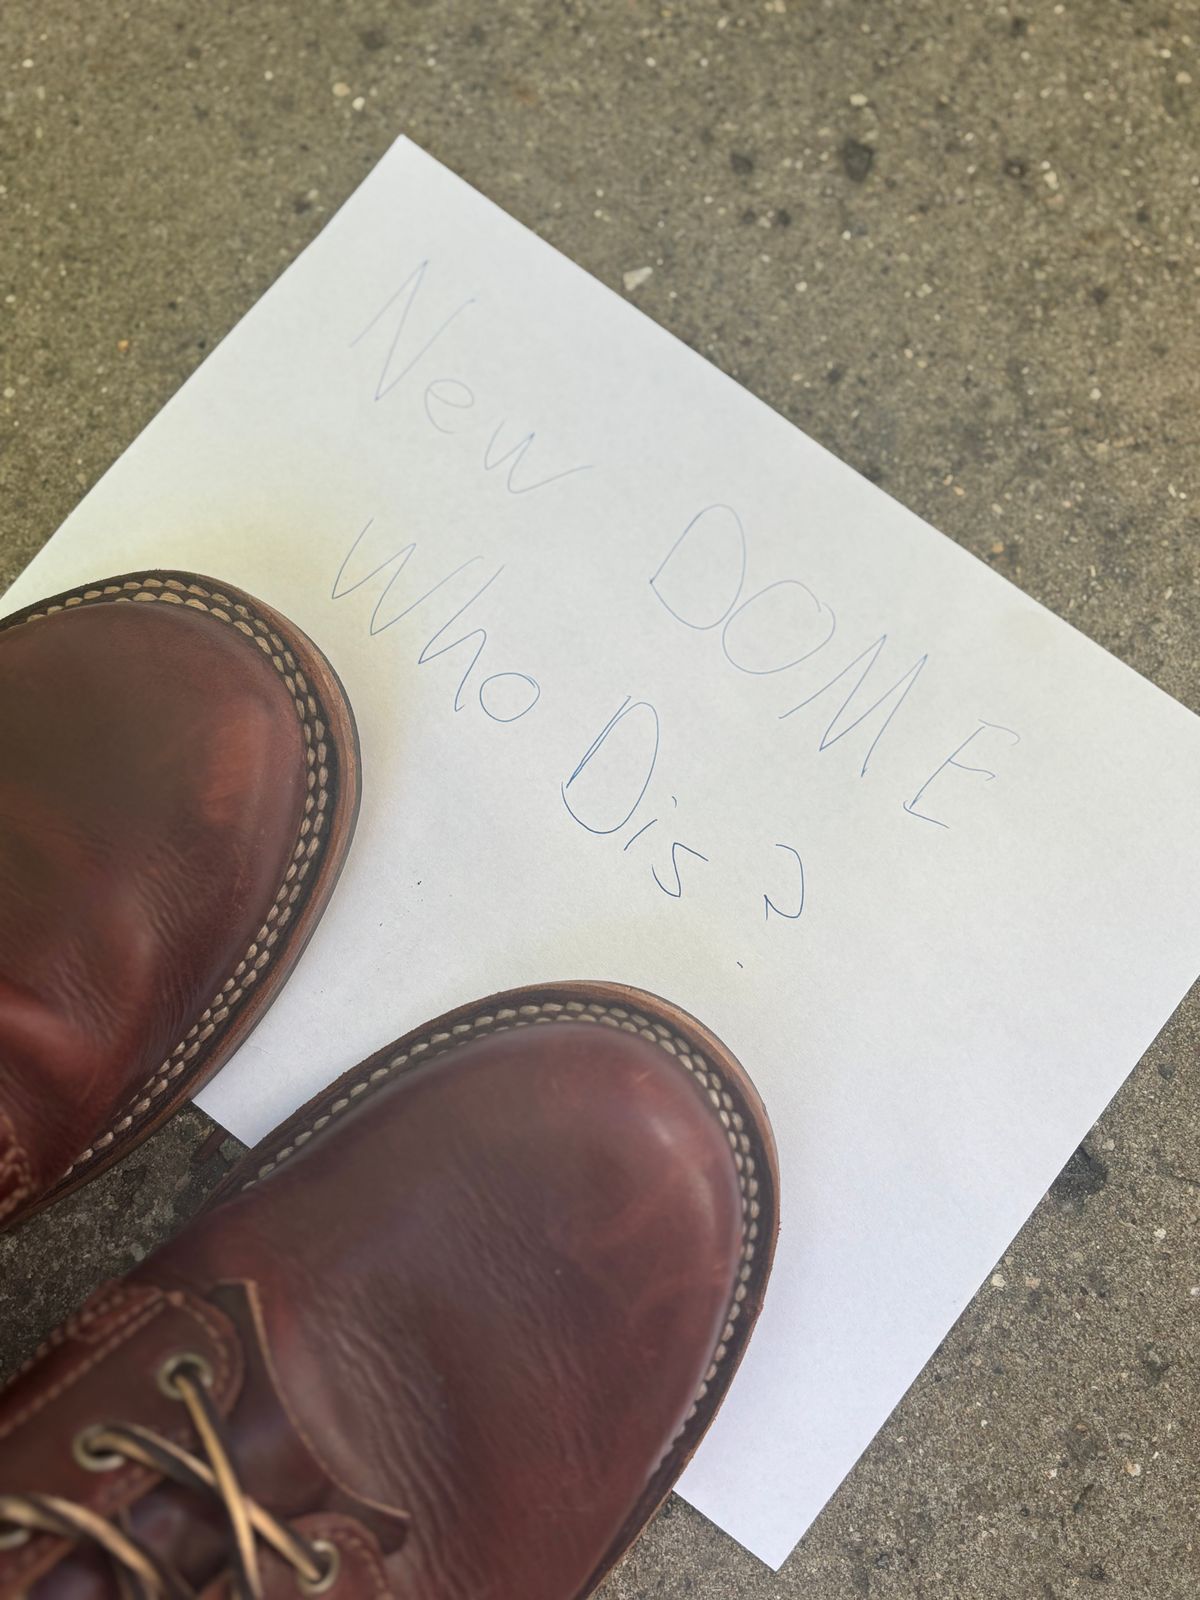 New DOME
Who Dis?